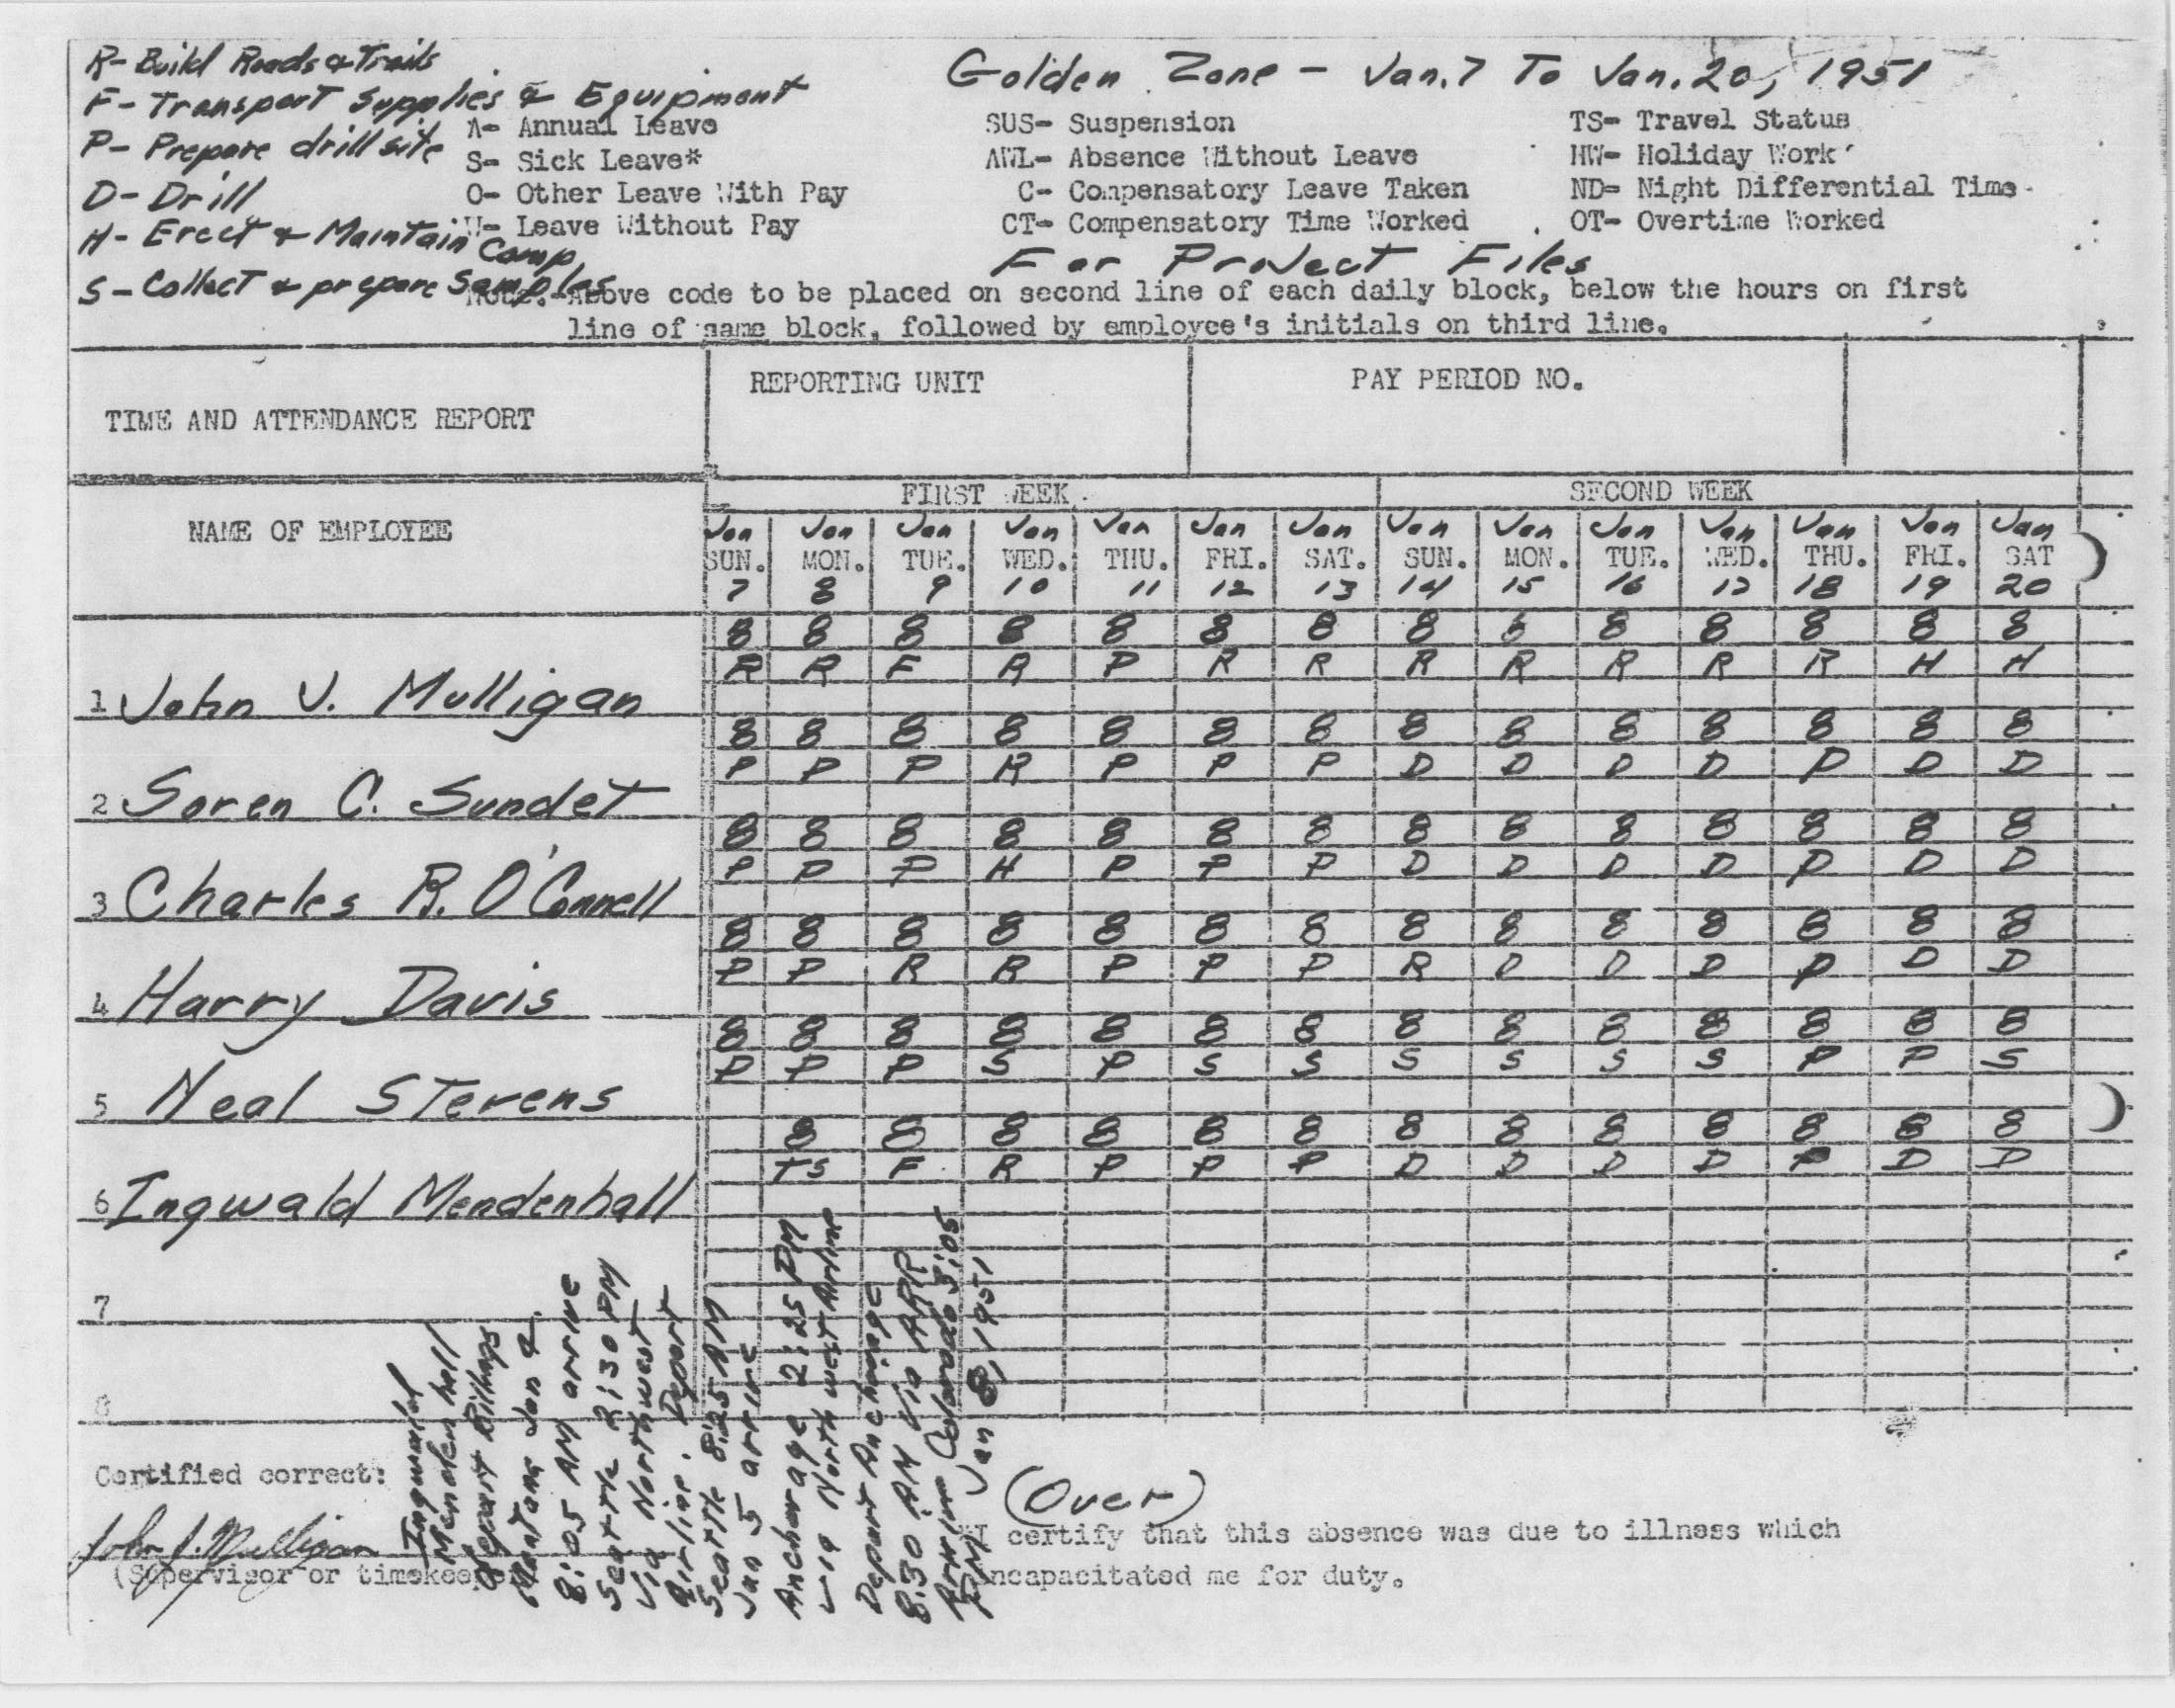 R- Build Roads & Trails
Golden Zone - Jan. 7 To Jan. 20, 1951
F- Transport Supplies & Equipment
A- Annual Leave SUS- Suspension TS- Travel Status
P- Prepare drill site
S- Sick Leave* AWL- Absence Without Leave HW- Holiday Work
D- Drill
O- Other Leave With Pay C- Compensatory Leave Taken ND- Night Differential Time
H- Erect & Maintain Camp
W- Leave Without Pay CT- Compensatory Time Worked OT- Overtime Worked
For Project Files
S- Collect & prepare Samples
Note:-Above code to be placed on second line of each daily block, below the hours on first
line of same block, followed by employee's initials on third line.
REPORTING UNIT PAY PERIOD NO.
TIME AND ATTENDANCE REPORT
FIRST WEEK SECOND WEEK
NAME OF EMPLOYEE
Jan Jan Jan Jan Jan Jan Jan Jan Jan Jan Jan Jan Jan Jan
SUN. MON. TUE. WED. THU. FRI. SAT. SUN. MON. TUE. WED. THU. FRI. SAT
7 8 9 10 11 12 13 14 15 16 17 18 19 20
8 8 8 8 8 8 8 8 8 8 8 8 8
R R F R P R R R R R R R H H
1 John J. Mulligan
8 8 8 8 8 8 8 8 8 8 8 8 8 8
P P P R P P P D D D D P D D
2 Soren C. Sundet
8 8 8 8 8 8 8 8 8 8 8 8 8 8
P P P H P P P D D D D P D D
3 Charles R. O'Connell
8 8 8 8 8 8 8 8 8 8 8 8 8 8
P P R R P P P R D D D P D D
4 Harry Davis
8 8 8 8 8 8 8 8 8 8 8 8 8 8
P P P S P S S S S S S P P S
5 Neal Stevens
8 8 8 8 8 8 8 8 8 8 8 8 8
TS F R P P P D D D D P D D
6 Ingwald Mendenhall
7
8
Ingwald
Mendenhall
Depart Billings
Montana Jan 4
8:05 AM arrive
Seattle 2:30 PM
Via Northwest
Airline. Depart
Seattle 8:25 AM
Jan 5 arrive
Anchorage 2:25 PM
via Northwest Airline
Depart Anchorage
8:30 AM Via ARR
Arrive Colorado 5:05
PM Jan 8, 1951
Certified correct:
John J. Mulligan
(Supervisor or timekeeper
(Over)
*I certify that this absence was due to illness which
incapacitated me for duty.